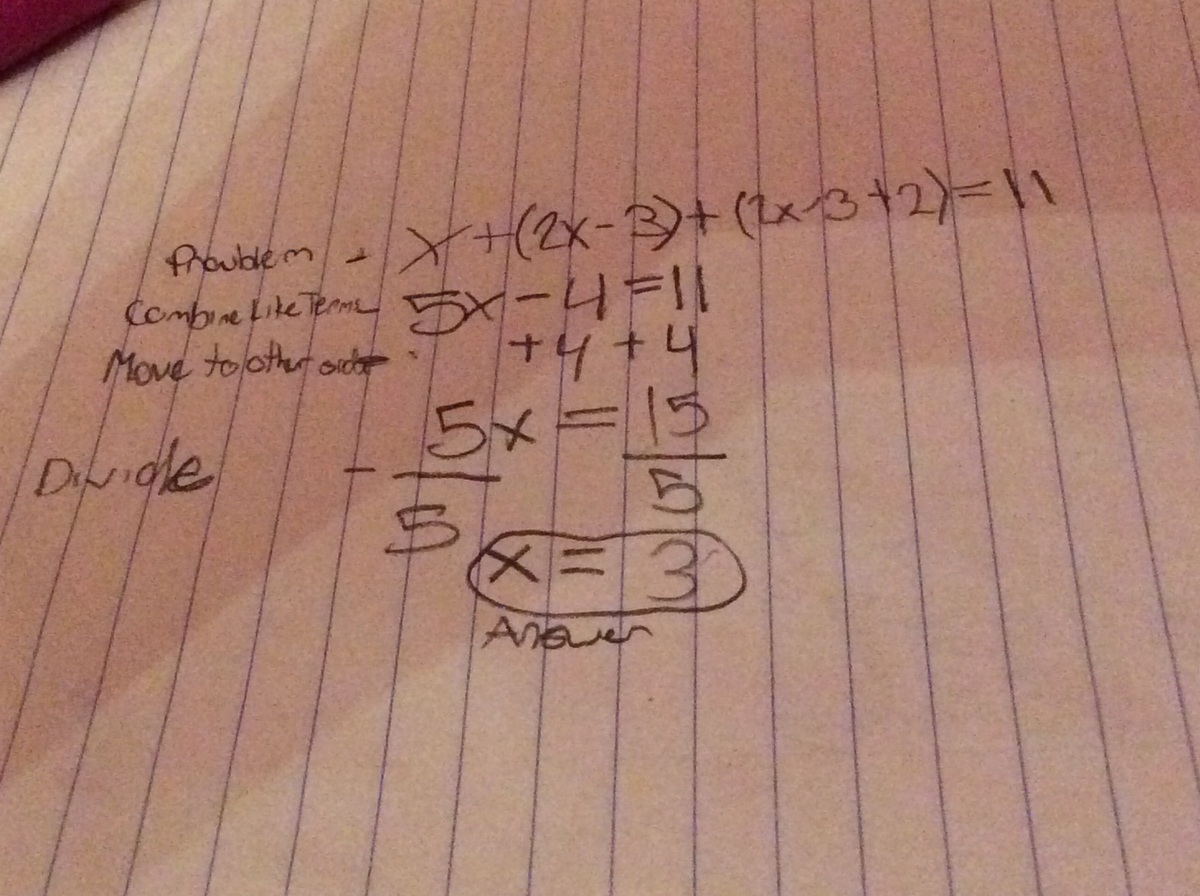 Problem - x+(2x-3)+(2x-3+2)=11
Combine Like Terms 5x-4=11
Move to other side - +4 +4
5x = 15
Divide - 5 5
x = 3
Answer